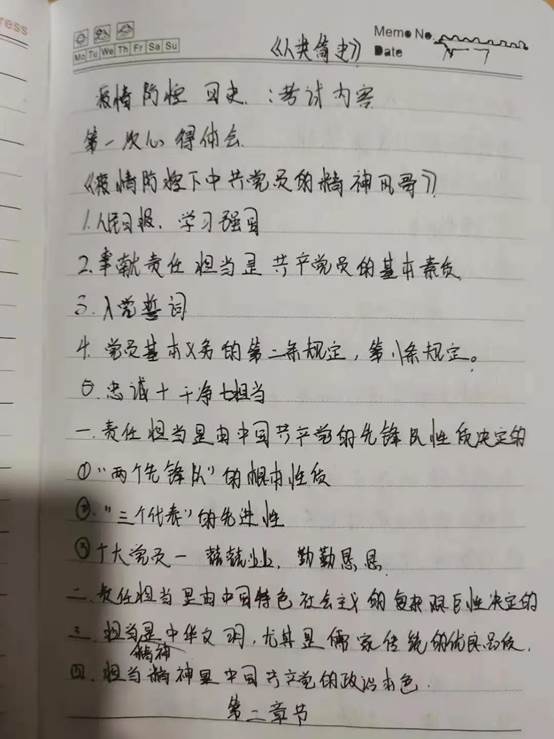 ress
Memo No.
Mo Tu We Th Fr Sa Su
《人类简史》
Date
疫情防控 国史:考试内容
第一次心得体会
《疫情防控下中共党员的精神风哥》
1.人民日报、学习强国
2.事就责任担当是共产党员的基本素质
3.入党誓词
4.党员基本义务的第二条规定,第八条规定。
5.忠诚+干净+担当
一.责任担当是由中国共产党的先锋队性质决定的
①“两个先锋队”的根本性质
②“三个代表”的先进性
③十大党员一 兢兢业业、勤勤恳恳
二.责任担当是由中国特色社会主义的复杂艰巨性决定的
三.担当精神是中华文明,尤其是儒家传统的优良品质.
四.担当精神是中国共产党的政治本色.
第二章节